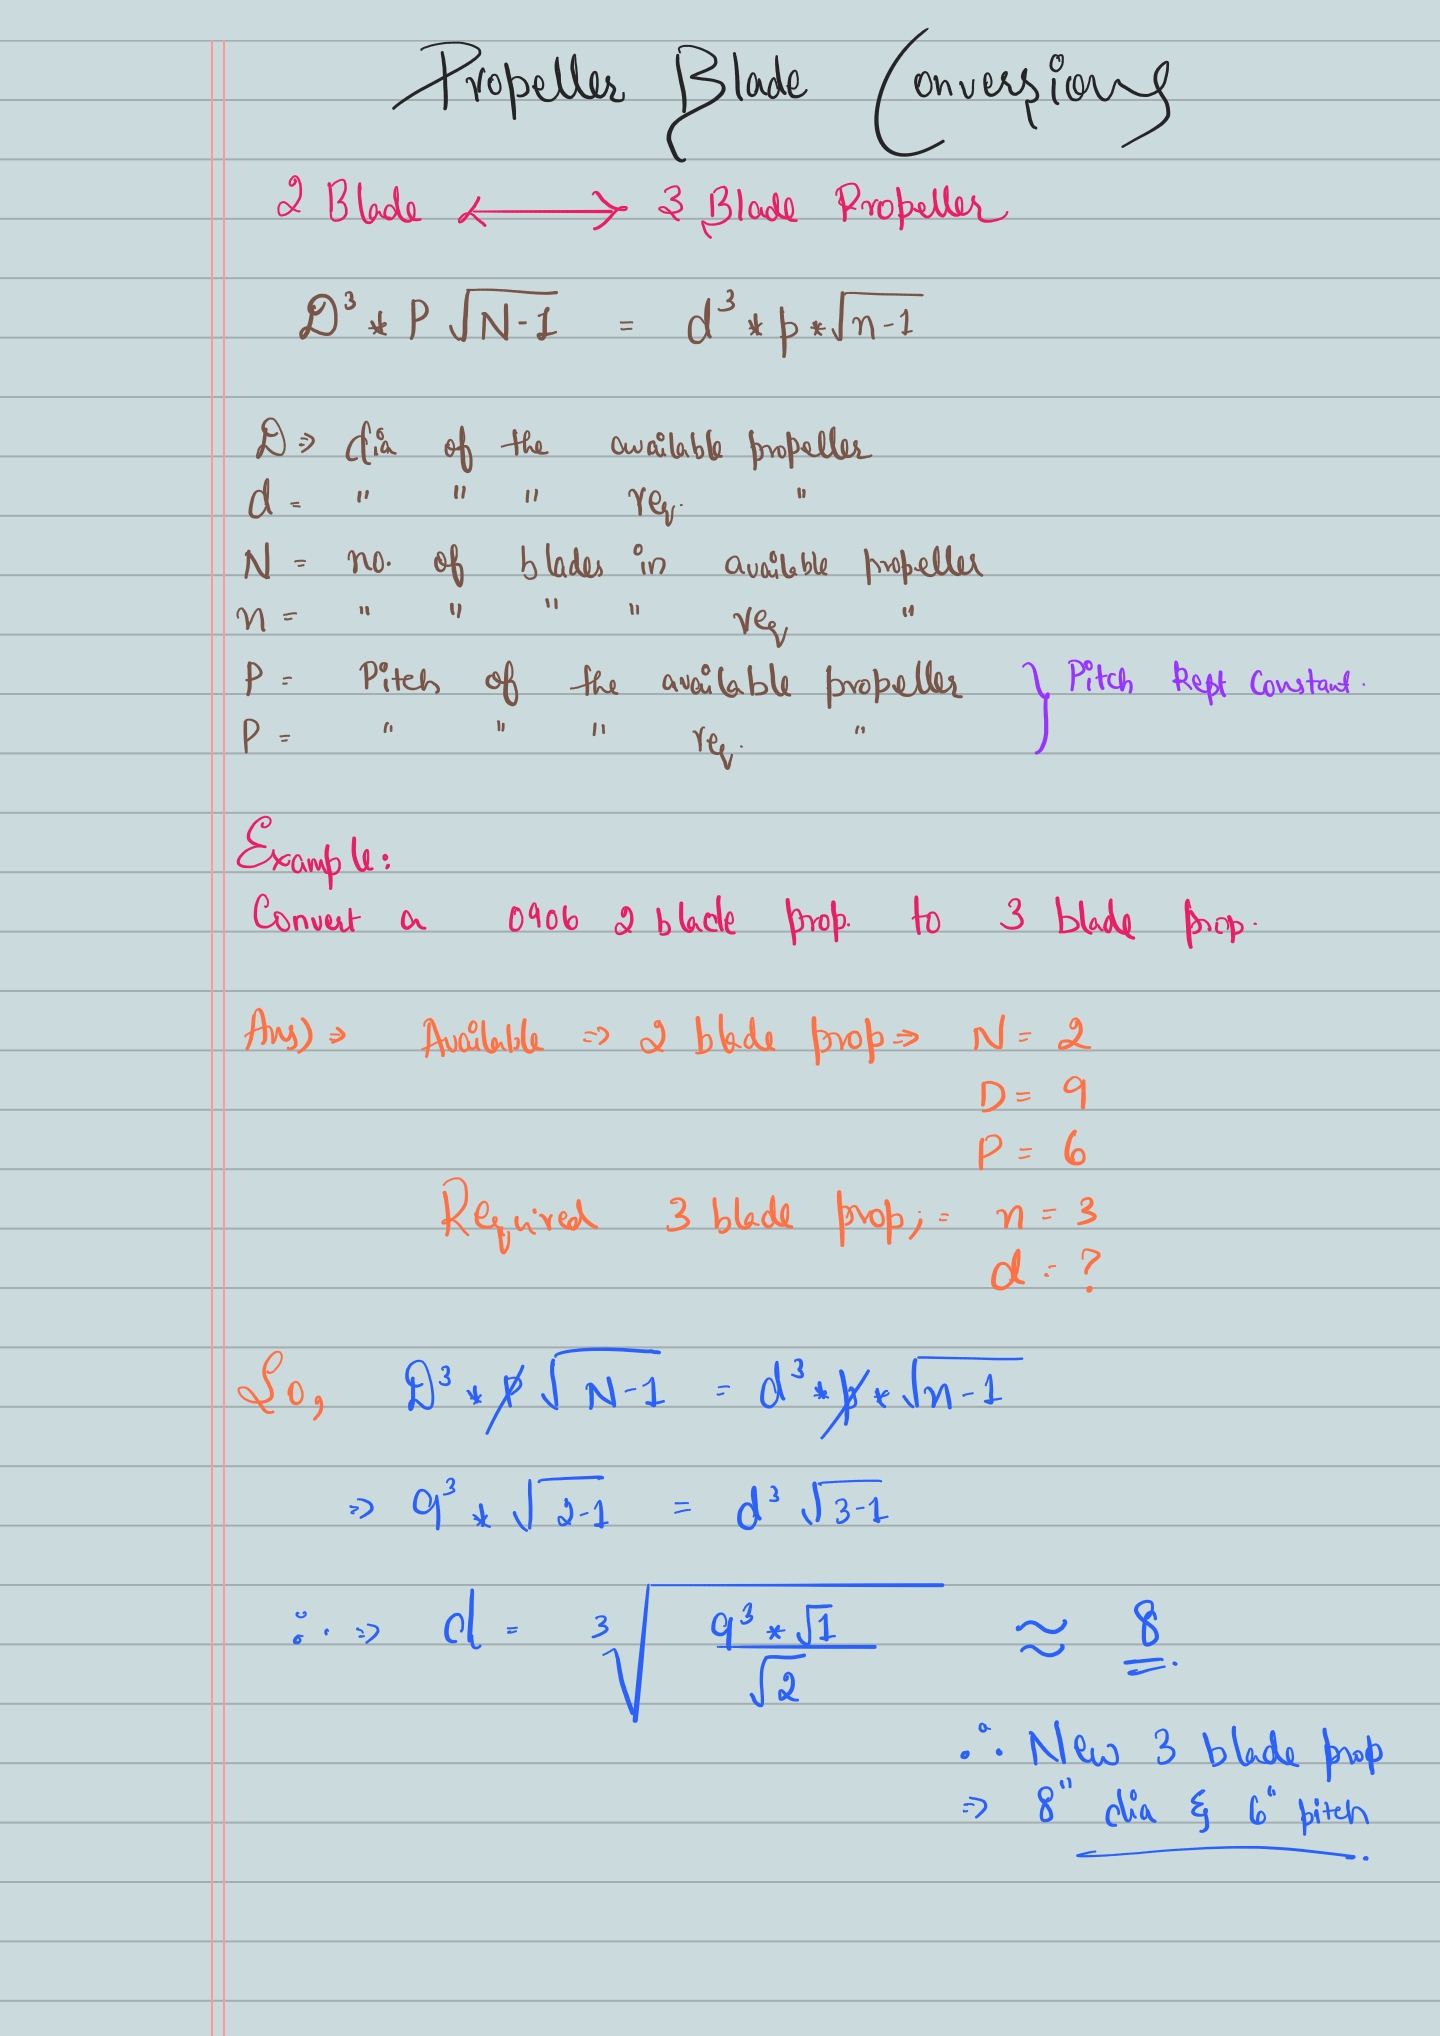 Propeller Blade Conversions
2 Blade ⟷ 3 Blade Propeller
D³ * P √(N-1) = d³ * p * √(n-1)
D ⇒ dia of the available propeller
d = " " " req. "
N = no. of blades in available propeller
n = " " " " req "
P = Pitch of the available propeller } Pitch kept constant.
P = " " " req. "
Example:
Convert a 0906 2 blade prop. to 3 blade prop.
Ans) ⇒ Available ⇒ 2 blade prop ⇒ N = 2
D = 9
P = 6
Required 3 blade prop; = n = 3
d = ?
So, D³ * P √(N-1) = d³ * p * √(n-1)
⇒ 9³ * √(2-1) = d³ √(3-1)
∴ ⇒ d = ³√(9³ * √1 / √2) ≈ 8.
∴ New 3 blade prop
⇒ 8" dia & 6" pitch.